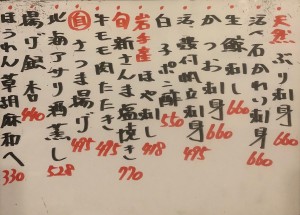 天然 ぶり刺身 660
活〆石かれい刺身 660
生鯨刺し 660
かつお刺身 660
活〆帆立刺身 495
白子ポン酢 550
岩手産 ほや刺し 418
旬 新さんま塩焼き 770
牛モモ肉たたき 495
自 さつま揚げ 495
北海アサリ酒蒸し 528
揚げ銀杏 440
ほうれん草胡麻和へ 330